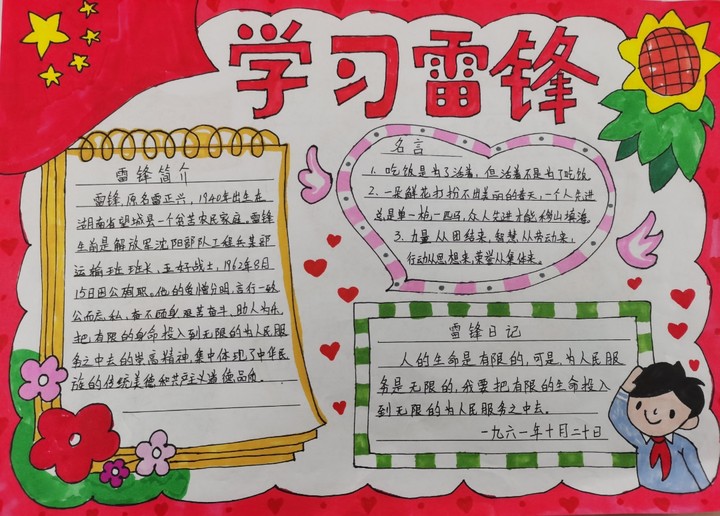 学习雷锋
雷锋简介
雷锋,原名雷正兴,1940年出生在
湖南省望城县一个贫苦农民家庭。雷锋
生前是解放军沈阳部队工程兵某部
运输班班长,五好战士,1962年8月
15日因公殉职。他的爱憎分明,言行一致
公而忘私,奋不顾身,艰苦奋斗,助人为乐,
把有限的生命投入到无限的为人民服
务之中去的崇高精神,集中体现了中华民
族的传统美德和共产主义道德品质。
名言
1. 吃饭是为了活着,但活着不是为了吃饭
2. 一朵鲜花打扮不出美丽的春天,一个人先进
总是单一枪一匹马,众人先进才能移山填海
3. 力量从团结来,智慧从劳动来,
行动从思想来,荣誉从集体来。
雷锋日记
人的生命是有限的,可是,为人民服
务是无限的,我要把有限的生命投入
到无限的为人民服务之中去。
一九六一年十月二十日